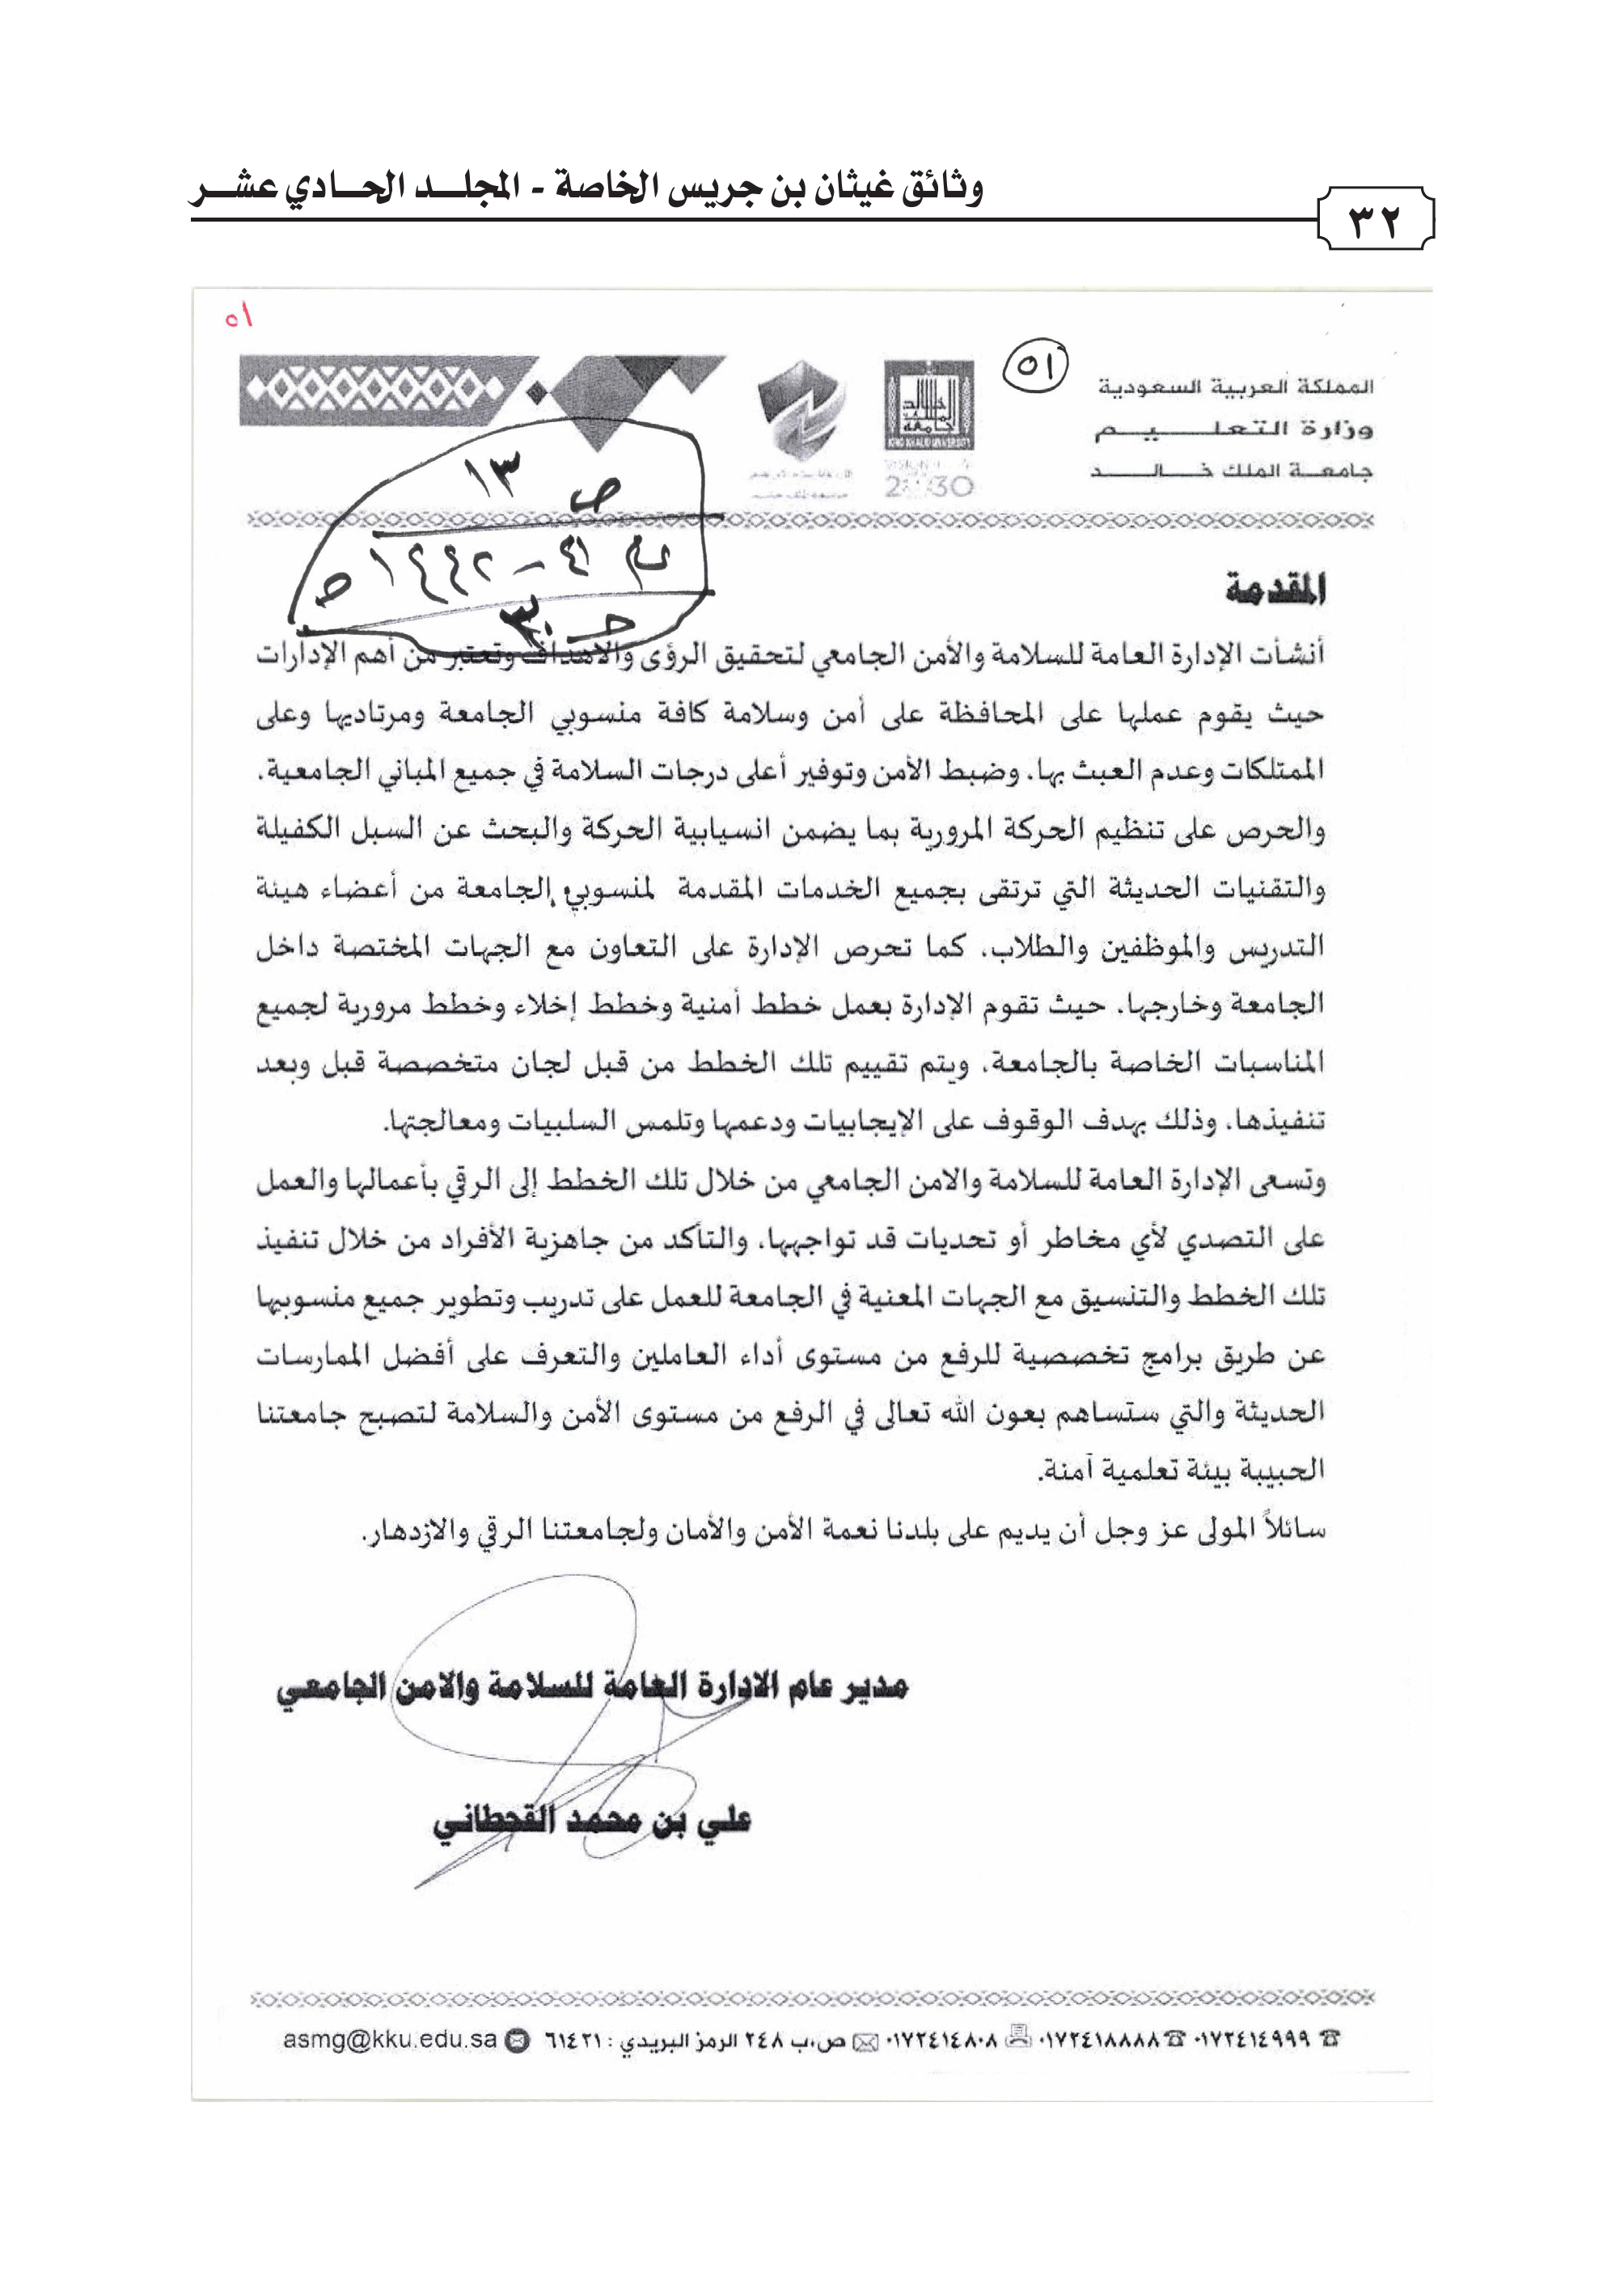 وثائق غيثان بن جريس الخاصة - المجلد الحادي عشر
٣٢
٥١
٥١
المملكة العربية السعودية
وزارة التعليم
جامعة الملك خالد
KING KHALID UNIVERSITY
2030
ص ١٣
١٤٤٢ هـ
المقدمة
أنشأت الإدارة العامة للسلامة والأمن الجامعي لتحقيق الرؤى والاهداف وتعتبر من أهم الإدارات
حيث يقوم عملها على المحافظة على أمن وسلامة كافة منسوبي الجامعة ومرتاديها وعلى
الممتلكات وعدم العبث بها، وضبط الأمن وتوفير أعلى درجات السلامة في جميع المباني الجامعية،
والحرص على تنظيم الحركة المرورية بما يضمن انسيابية الحركة والبحث عن السبل الكفيلة
والتقنيات الحديثة التي ترتقى بجميع الخدمات المقدمة لمنسوبي الجامعة من أعضاء هيئة
التدريس والموظفين والطلاب، كما تحرص الإدارة على التعاون مع الجهات المختصة داخل
الجامعة وخارجها، حيث تقوم الإدارة بعمل خطط أمنية وخطط إخلاء وخطط مرورية لجميع
المناسبات الخاصة بالجامعة، ويتم تقييم تلك الخطط من قبل لجان متخصصة قبل وبعد
تنفيذها، وذلك بهدف الوقوف على الإيجابيات ودعمها وتلمس السلبيات ومعالجتها.
وتسعى الإدارة العامة للسلامة والامن الجامعي من خلال تلك الخطط إلى الرقي بأعمالها والعمل
على التصدي لأي مخاطر أو تحديات قد تواجهها، والتأكد من جاهزية الأفراد من خلال تنفيذ
تلك الخطط والتنسيق مع الجهات المعنية في الجامعة للعمل على تدريب وتطوير جميع منسوبيها
عن طريق برامج تخصصية للرفع من مستوى أداء العاملين والتعرف على أفضل الممارسات
الحديثة والتي ستساهم بعون الله تعالى في الرفع من مستوى الأمن والسلامة لتصبح جامعتنا
الحبيبة بيئة تعلمية آمنة.
سائلاً المولى عز وجل أن يديم على بلدنا نعمة الأمن والأمان ولجامعتنا الرقي والازدهار.
مدير عام الادارة العامة للسلامة والامن الجامعي
علي بن محمد القحطاني
٠١٧٢٤١٤٩٩٩ ٠١٧٢٤١٨٨٨٨ ٠١٧٢٤١٤٨٠٨ ص.ب ٢٤٨ الرمز البريدي : ٦١٤٢١ asmg@kku.edu.sa